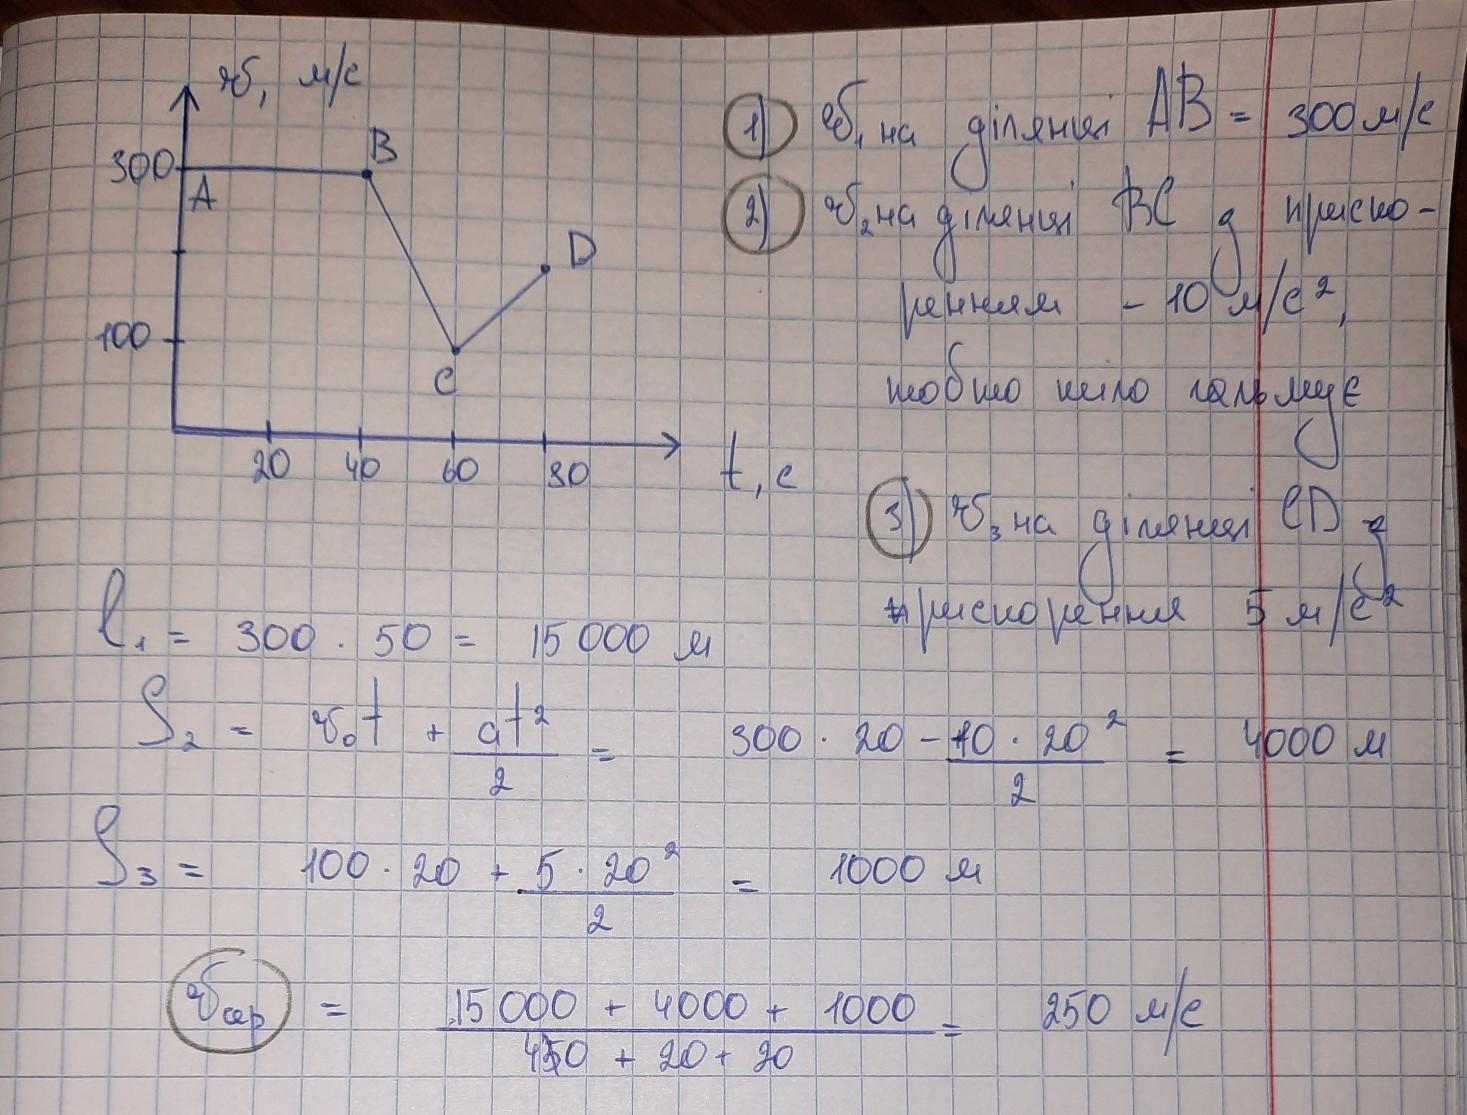 υ, м/с
300
A
B
D
100
C
20 40 60 80
t, с
1) υ₁ на ділянці AB = 300 м/с
2) υ₂ на ділянці BC з приско-
ренням - 10 м/с²,
тобто тіло гальмує
3) υ₃ на ділянці CD з
прискорення 5 м/с²
l₁ = 300 · 50 = 15 000 м
S₂ = υ₀t + at²/2 = 300 · 20 - 10 · 20²/2 = 4000 м
S₃ = 100 · 20 + 5 · 20²/2 = 1000 м
υсер = 15 000 + 4000 + 1000 / + 20 + 20 = 250 м/с